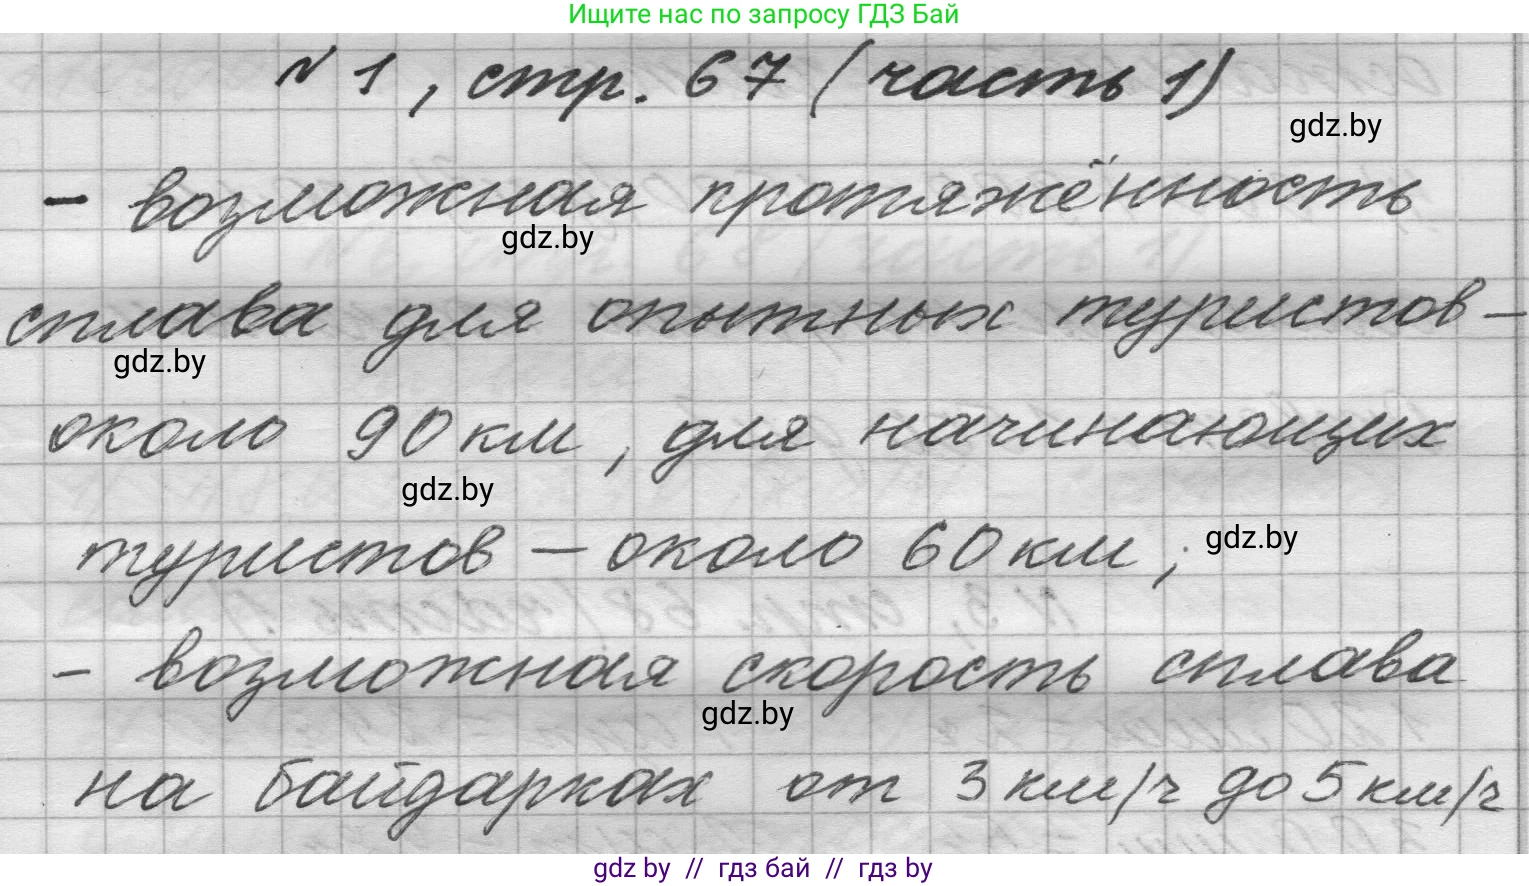 Ищите нас по запросу ГДЗ Бай
№ 1, стр. 67 (часть 1)
gdz.by
- возможная протяжённость
gdz.by
сплава для опытных туристов -
gdz.by
около 90 км, для начинающих
gdz.by
туристов - около 60 км;
gdz.by
- возможная скорость сплава
gdz.by
на байдарках от 3 км/ч до 5 км/ч
gdz by // гдз бай // гдз by